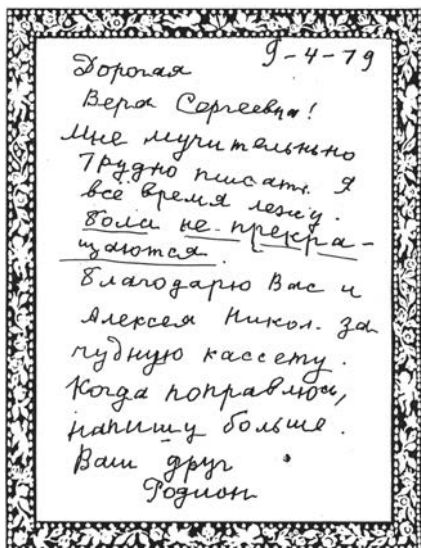 9-4-79
Дорогая
Вера Сергеевна!
Мне мучительно
трудно писать. Я
всё время лежу.
Боли не прекра-
щаются.
Благодарю Вас и
Алексея Никол. за
чудную кассету.
Когда поправлюсь,
напишу больше.
Ваш друг
Родион